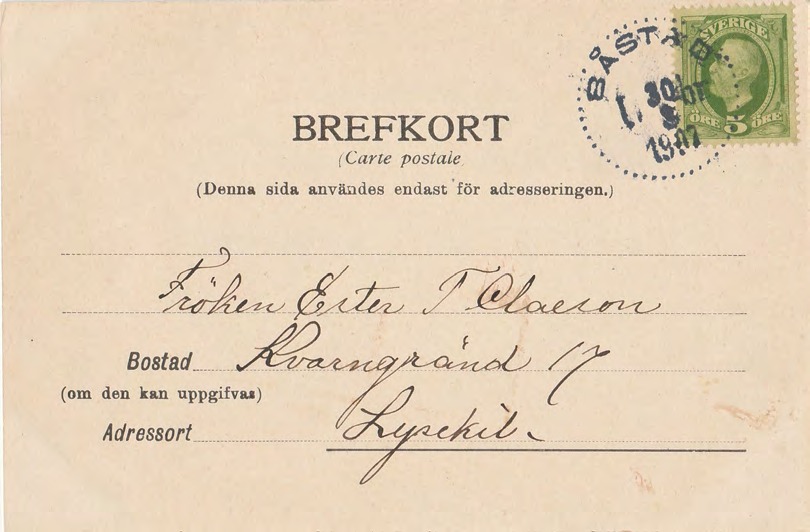 BREFKORT
(Carte postale
(Denna sida användes endast för adresseringen.)
BÅSTAD
30
1907
SVERIGE
ÖRE 5 ÖRE
Fröken Ester T Claeson
Bostad Kvarngränd 17
(om den kan uppgifvas)
Adressort Lysekil